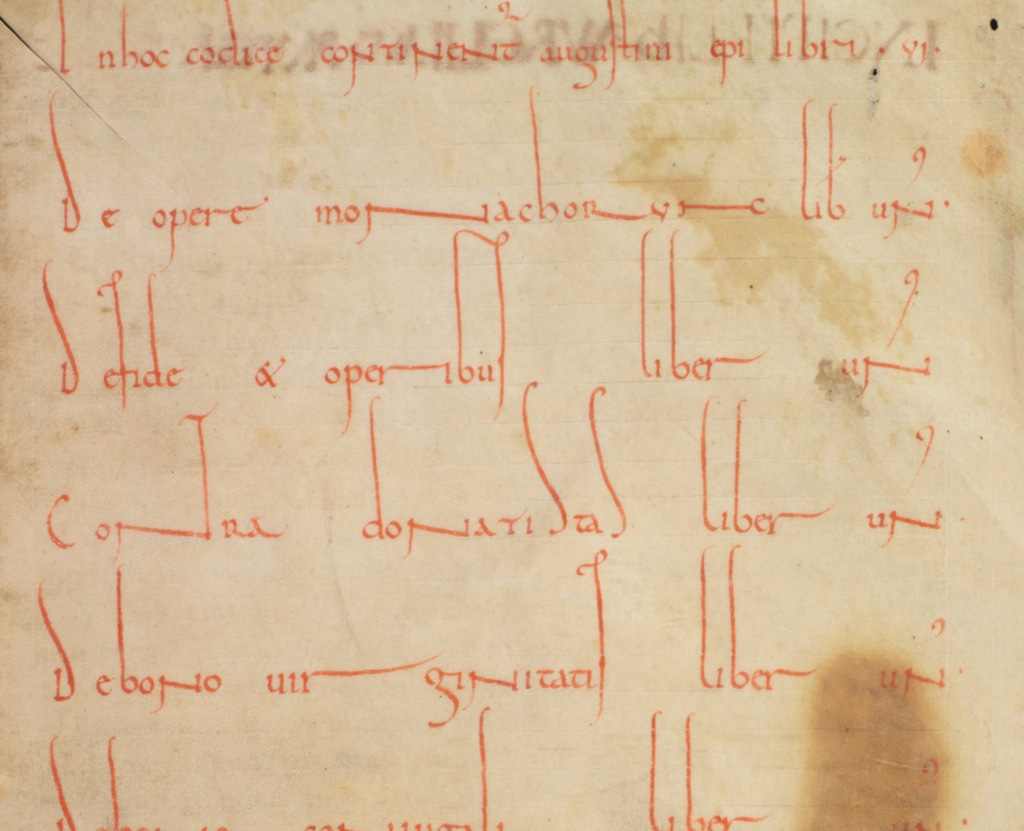 In hoc codice continent augustini epi libri · vi ·
De opere monachorum lib un9 ·
De fide & operibus liber un9
Contra donatistas liber un9 ·
De bono virginitatis liber un9 ·
De bono con iugali liber un9 ·